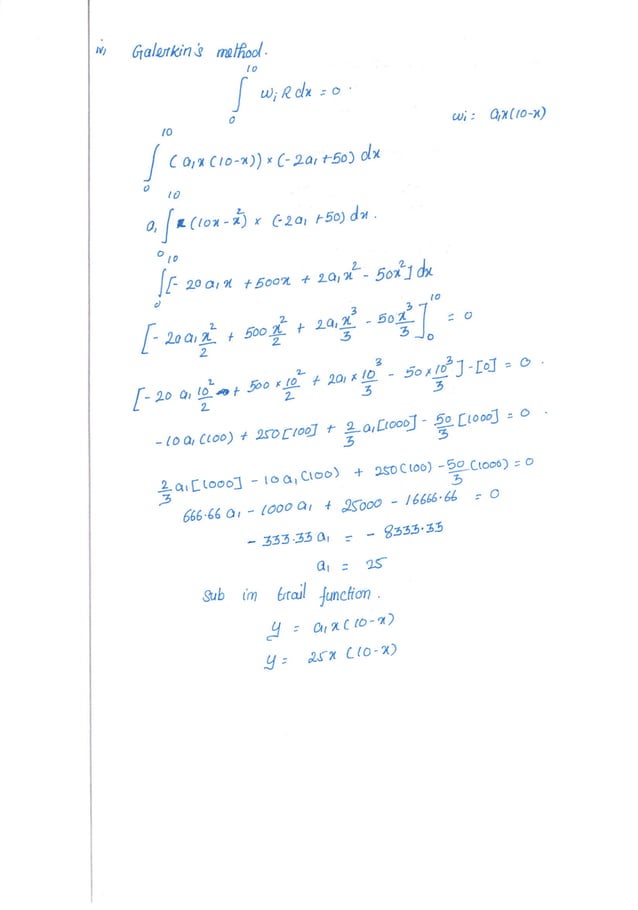 iv, Galerkin's method.
∫₀¹⁰ wi R dx = 0.
wi = a₁x(10-x)
∫₀¹⁰ (a₁x(10-x)) × (-2a₁+50) dx
a₁ ∫₀¹⁰ (10x-x²) × (-2a₁+50) dx.
∫₀¹⁰ [-20a₁x + 500x + 2a₁x² - 50x²] dx
[-20a₁x²/2 + 500x²/2 + 2a₁x³/3 - 50x³/3]₀¹⁰ = 0
[-20 a₁ 10²/2 + 500 × 10²/2 + 2a₁ × 10³/3 - 50 × 10³/3] - [0] = 0.
-10a₁(100) + 250[100] + 2/3 a₁[1000] - 50/3 [1000] = 0.
2/3 a₁[1000] - 10a₁(100) + 250(100) - 50/3 (1000) = 0
666.66 a₁ - 1000 a₁ + 25000 - 16666.66 = 0
- 333.33 a₁ = - 8333.33
a₁ = 25
Sub in trail function.
y = a₁x(10-x)
y = 25x (10-x)